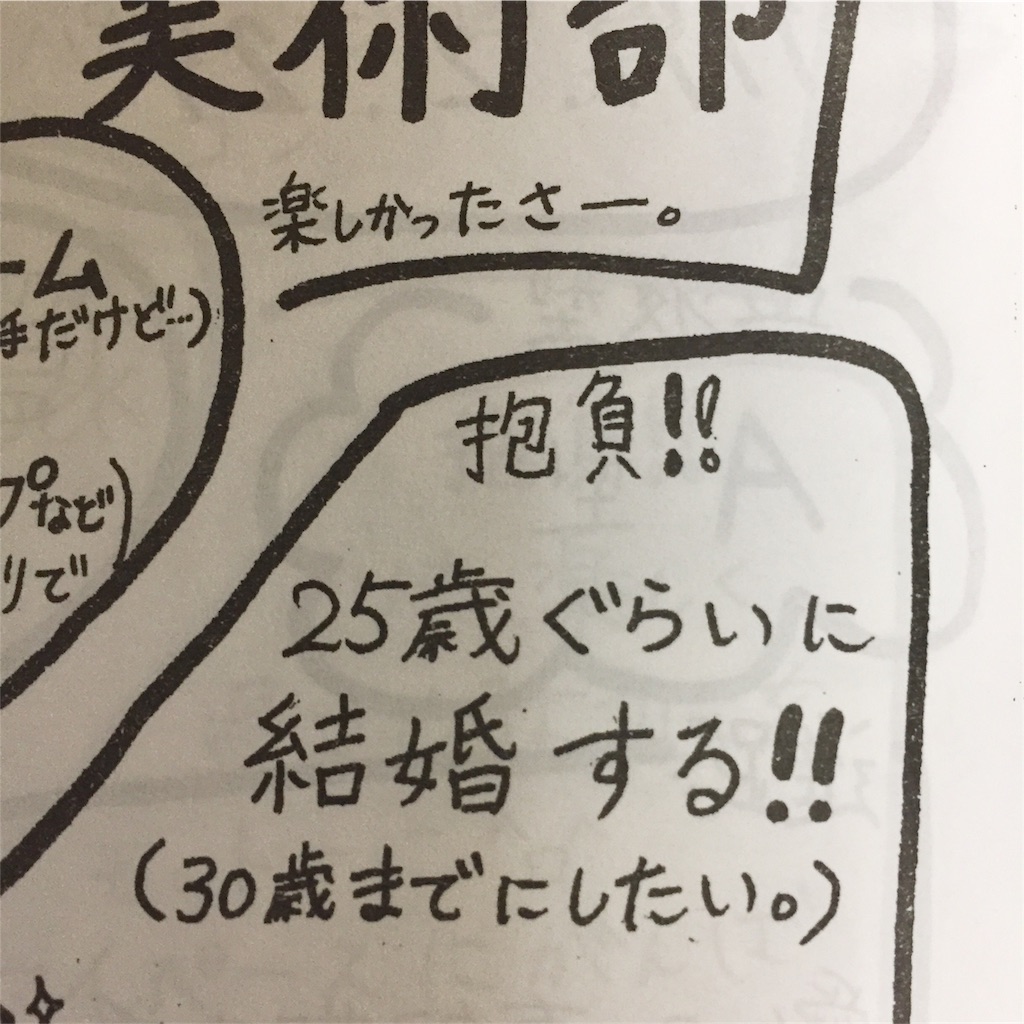 美術部
楽しかったさー。
ーム
手だけど…)
プなど)
りで
抱負!!
25歳ぐらいに
結婚する!!
(30歳までにしたい。)